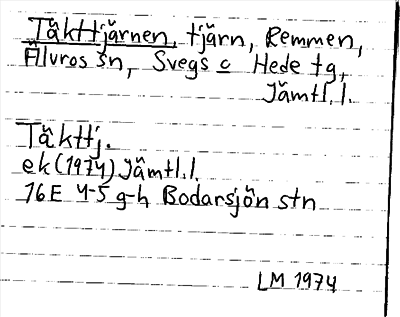 Täkttjärnen, tjärn, Remmen,
Älvros sn, Svegs o Hede tg,
Jämtl.l.
Täkttj.
ek (1974) Jämtl.l.
16E 4-5 g-h Bodarsjön stn
LM 1974